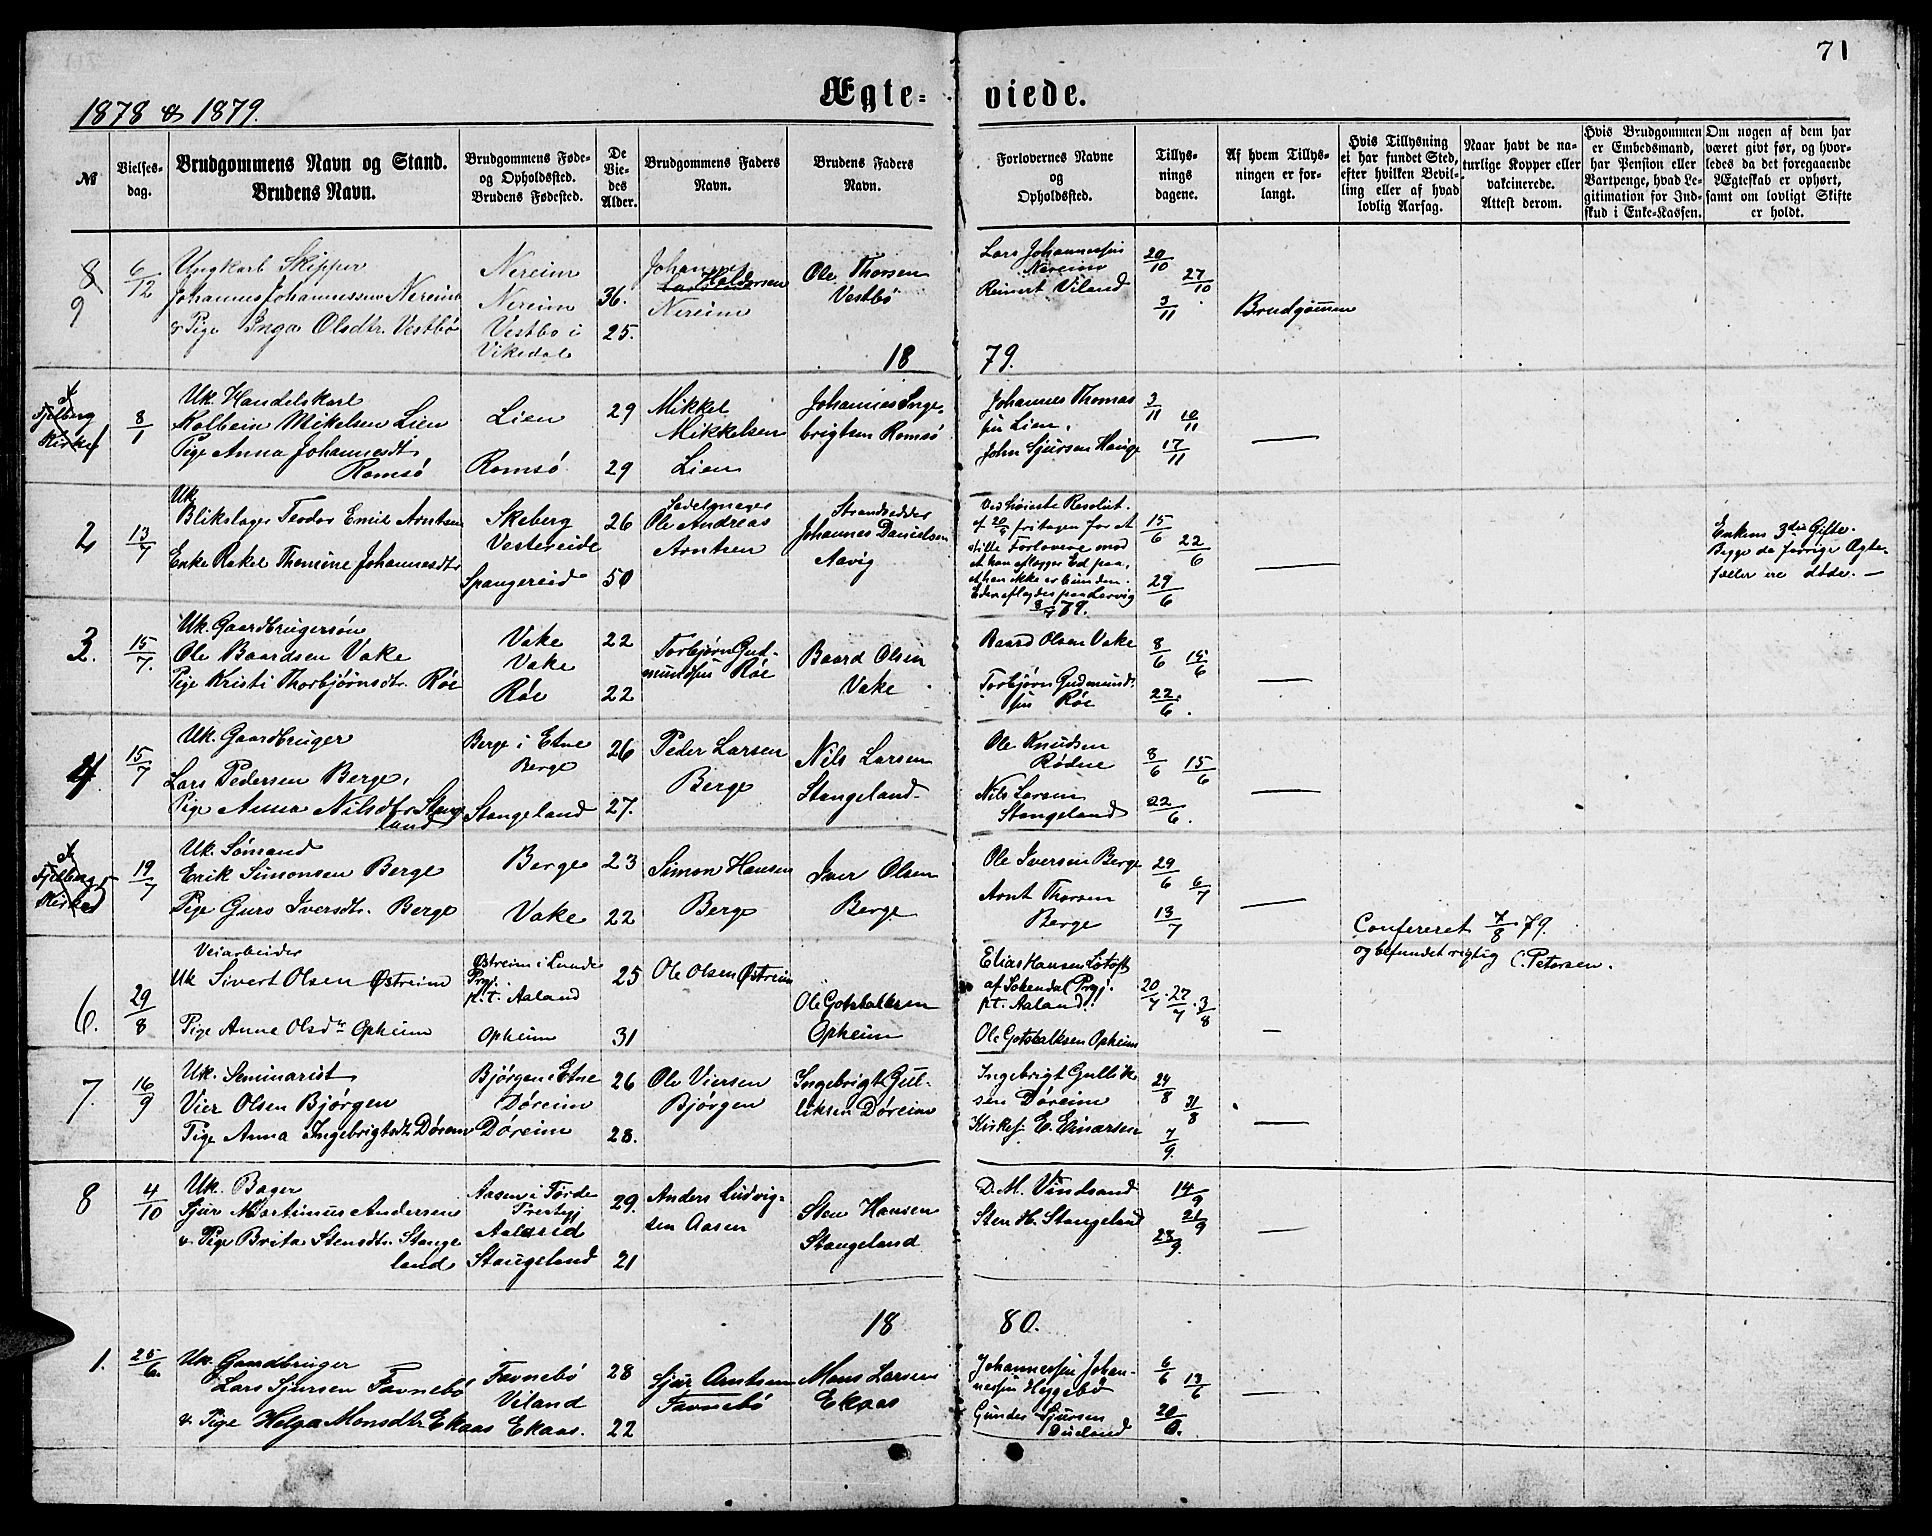 71
1878 & 1879.
Ægte=viede.
№
Vielses-
dag.
Brudgommens Navn og Stand.
Brudens Navn.
Brudgommens Føde-
og Opholdssted.
Brudens Fødested.
De
Vie-
des
Alder.
Brudgommens Faders
Navn.
Brudens Faders
Navn.
Forlovernes Navne
og
Opholdssted.
Tillys-
nings
dagene.
Af hvem Tillys-
ningen er for-
langt.
Hvis Tillysning
ei har fundet Sted,
efter hvilken Bevil-
ling eller af hvad
lovlig Aarsag.
Naar havt de na-
turlige Kopper eller
vakcinerede.
Attest derom.
Hvis Brudgommen
er Embedsmand,
har Pension eller
Vartpenge, hvad Le-
gitimation for Ind-
skud i Enke-Kassen.
Om nogen af dem har
været givt før, og hvor-
ledes da det foregaaende
Ægteskab er ophørt,
samt om lovligt Skifte
er holdt.
8
9
6/12
Ungkarl Skipper
Johannes Johannessen Nereim
& Pige Inga Olsdtr. Vestbø
Nereim
Nereim
Vestbo i
Vikedal
36.
25.
Johannes
Haldorsen
Nereim
Ole Thorsen
Vestbø
Lars Johannessen
Nereim
Reinert Viland
20/10
27/10
3/11
Brudgommen
18 79.
Fjelberg
Kirke
1
8/1
Uk. Handelskarl
Kolbein Mikelsen Lien
Pige Anna Johannesdt.
Romsö
Lien
Romsö
29
29
Mikkel
Mikkelsen
Lien
Johannes Inge-
brigtsen Romsö
Johannes Thomas
sen Lien.
John Sjursen Hauge
3/11
10/11
17/11
2
13/7
Uk.
Blikslager Teodor Emil Arntsen
Enke Rakel Thomine Johannesdtr
Skeberg
Vestereide
Spangereid
26
50
Sadelmager
Ole Andreas
Arntsen
Strandsidder
Johannes Danielsen
Aavig
Ved høieste Resolut.
af 20/5 fritagen for at
stille Forlovere mod
at han aflægger Ed paa,
at han ikke er bunden.
Eden aflagdes paa Lervig
8/7 79.
15/6
22/6
29/6
Enkens 3die Gifte.
Begge de forrige Ægte-
fæller ere døde. —
3.
15/7.
Uk. Gaardbrugersøn
Ole Baardsen Vake
Pige Kristi Thorbjørnsdtr. Röe
Vake
Vake
Röe
22
22
Torbjørn Gud-
mundsen Röe
Baard Olsen
Vake
Baard Olsen Vake
Torbjørn Gudmund-
sen Röe
8/6
15/6
22/6.
4.
15/7
Uk. Gaardbruger
Lars Pedersen Berge.
Pige Anna Nilsdtr Stange
land
Berge i Etne
Berge
Stangeland
26
27.
Peder Larsen
Berge
Nils Larsen
Stangeland
Ole Knudsen
Rødne
Nils Larsen
Stangeland
8/6
15/6
22/6.
Fjelberg
Kirke
5
19/7
Uk. Sömand
Erik Simonsen Berge
Pige Guro Iversdtr. Berge
Berge
Vake
23
22
Simon Hansen
Berge
Iver Olsen
Berge
Ole Iversen Berge
Arnt Thorsen
Berge
29/6
6/7
13/7
Confereret 7/8 79.
og befundet rigtig C. Petersen.
6.
29/8
Veiarbeider
Uk Sivert Olsen Østreim
Pige Anne Olsdtr Opheim
Østreim i Lunde
Prgj.
p.t. Aaland
Opheim
25
31
Ole Olsen Østreim
Ole Gotskalksen
Opheim
Elias Hansen Løtoft
af Sokendal Prgj.
p.t. Aaland.
Ole Gotskalksen Opheim
20/7. 27/7. 3/8
7
16/9
Uk. Seminarist
Vier Olsen Bjørgen
Pige Anna Ingebrigtsdtr Döreim
Bjørgen i Etne
Döreim
Döreim
26
28.
Ole Viersen
Bjørgen
Ingebrigt Gul-
liksen Döreim
Ingebrigt Gullik
sen Döreim
Kirkes. E. Einarsen
24/8
31/8
7/9.
8
4/10
Uk. Bager
Sjur Martinus Andersen
& Pige Brita Stensdtr. Stange
land
Aasen i Førde
Prestegj
Aalerid
Stangeland
29.
21
Anders Ludvig-
sen Aasen
Sten Hansen
Stangeland
D. M. Vindsand
Sten H. Stangeland
14/9
21/9
28/9.
18 80.
1.
25/6.
Uk. Gaardbruger
Lars Sjursen Favnebö
& Pige Helga Monsdtr Ekaas
Favnebö
Viland
Ekaas.
28
22
Sjur Arntsen
Favnebö
Mons Larsen
Ekaas
Johannessen Johan-
nessen Heggebö
Gunder Sjursen
Dueland
6/6
13/6
20/6.